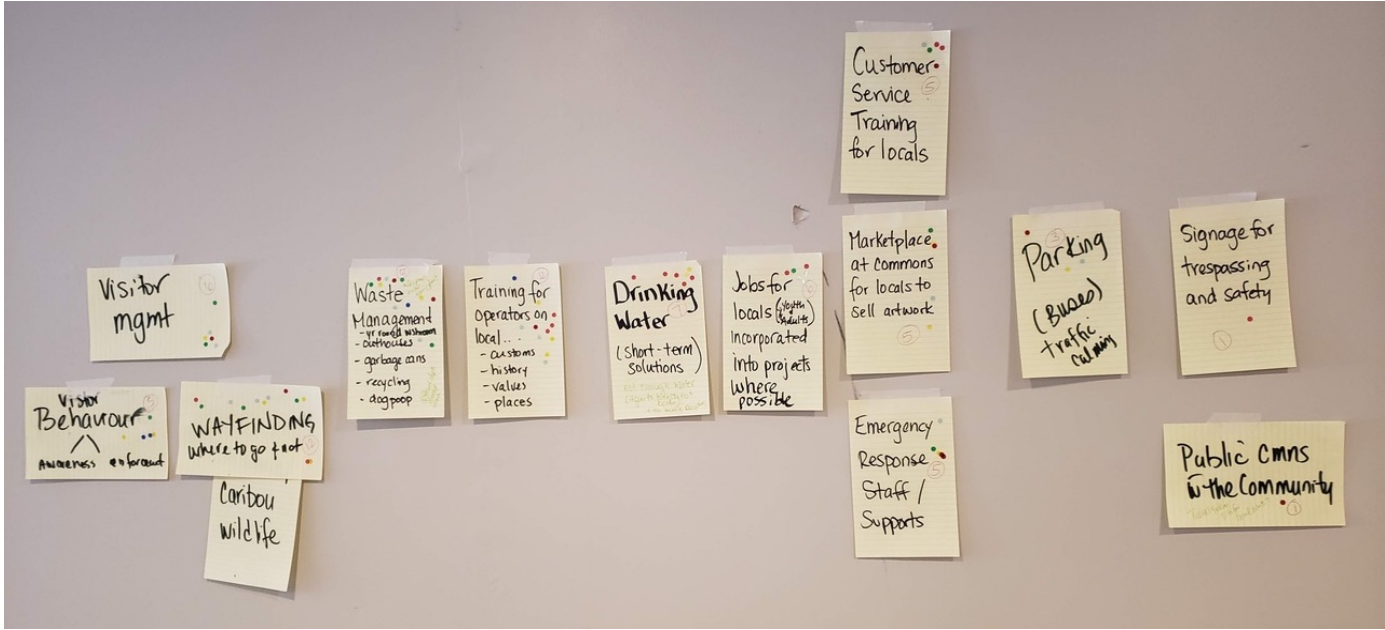 Visitor
mgmt
Visitor
Behaviour
Awareness enforcement
WAYFINDING
where to go & not
Caribou
Wildlife
Waste
Management
- yr round washroom
- outhouses
- garbage cans
- recycling
- dog poop
Training for
operators on
local...
- customs
- history
- values
- places
Drinking
Water
(short-term
solutions)
not enough water
Jobs for
locals (youth & Adults)
incorporated
into projects
where
possible
Customer
Service
Training
for locals
5
Marketplace
at commons
for locals to
sell artwork
5
Emergency
Response
5
Staff /
Supports
3
Parking
(Buses)
traffic
calming
Signage for
trespassing
and safety
1
Public cmns
in the Community
1